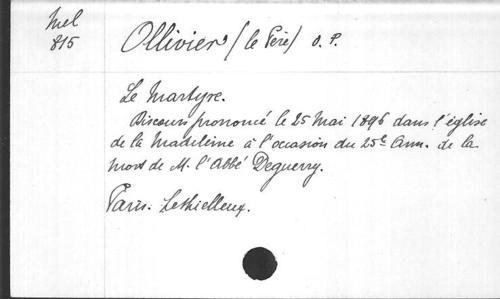 Mel
815
Ollivier (le Père) O. P.
Le Martyre.
Discours prononcé le 25 Mai 1896 dans l'église
de la Madeleine à l'occasion du 25e Ann. de la
mort de M. l'Abbé Deguerry.
Paris. Lethielleux.